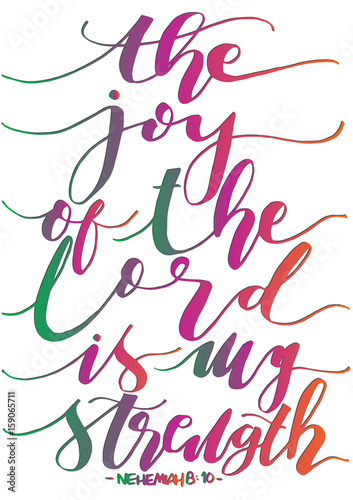 the
joy
of the
Lord
is my
strength
- NEHEMIAH 8:10 -
159065711